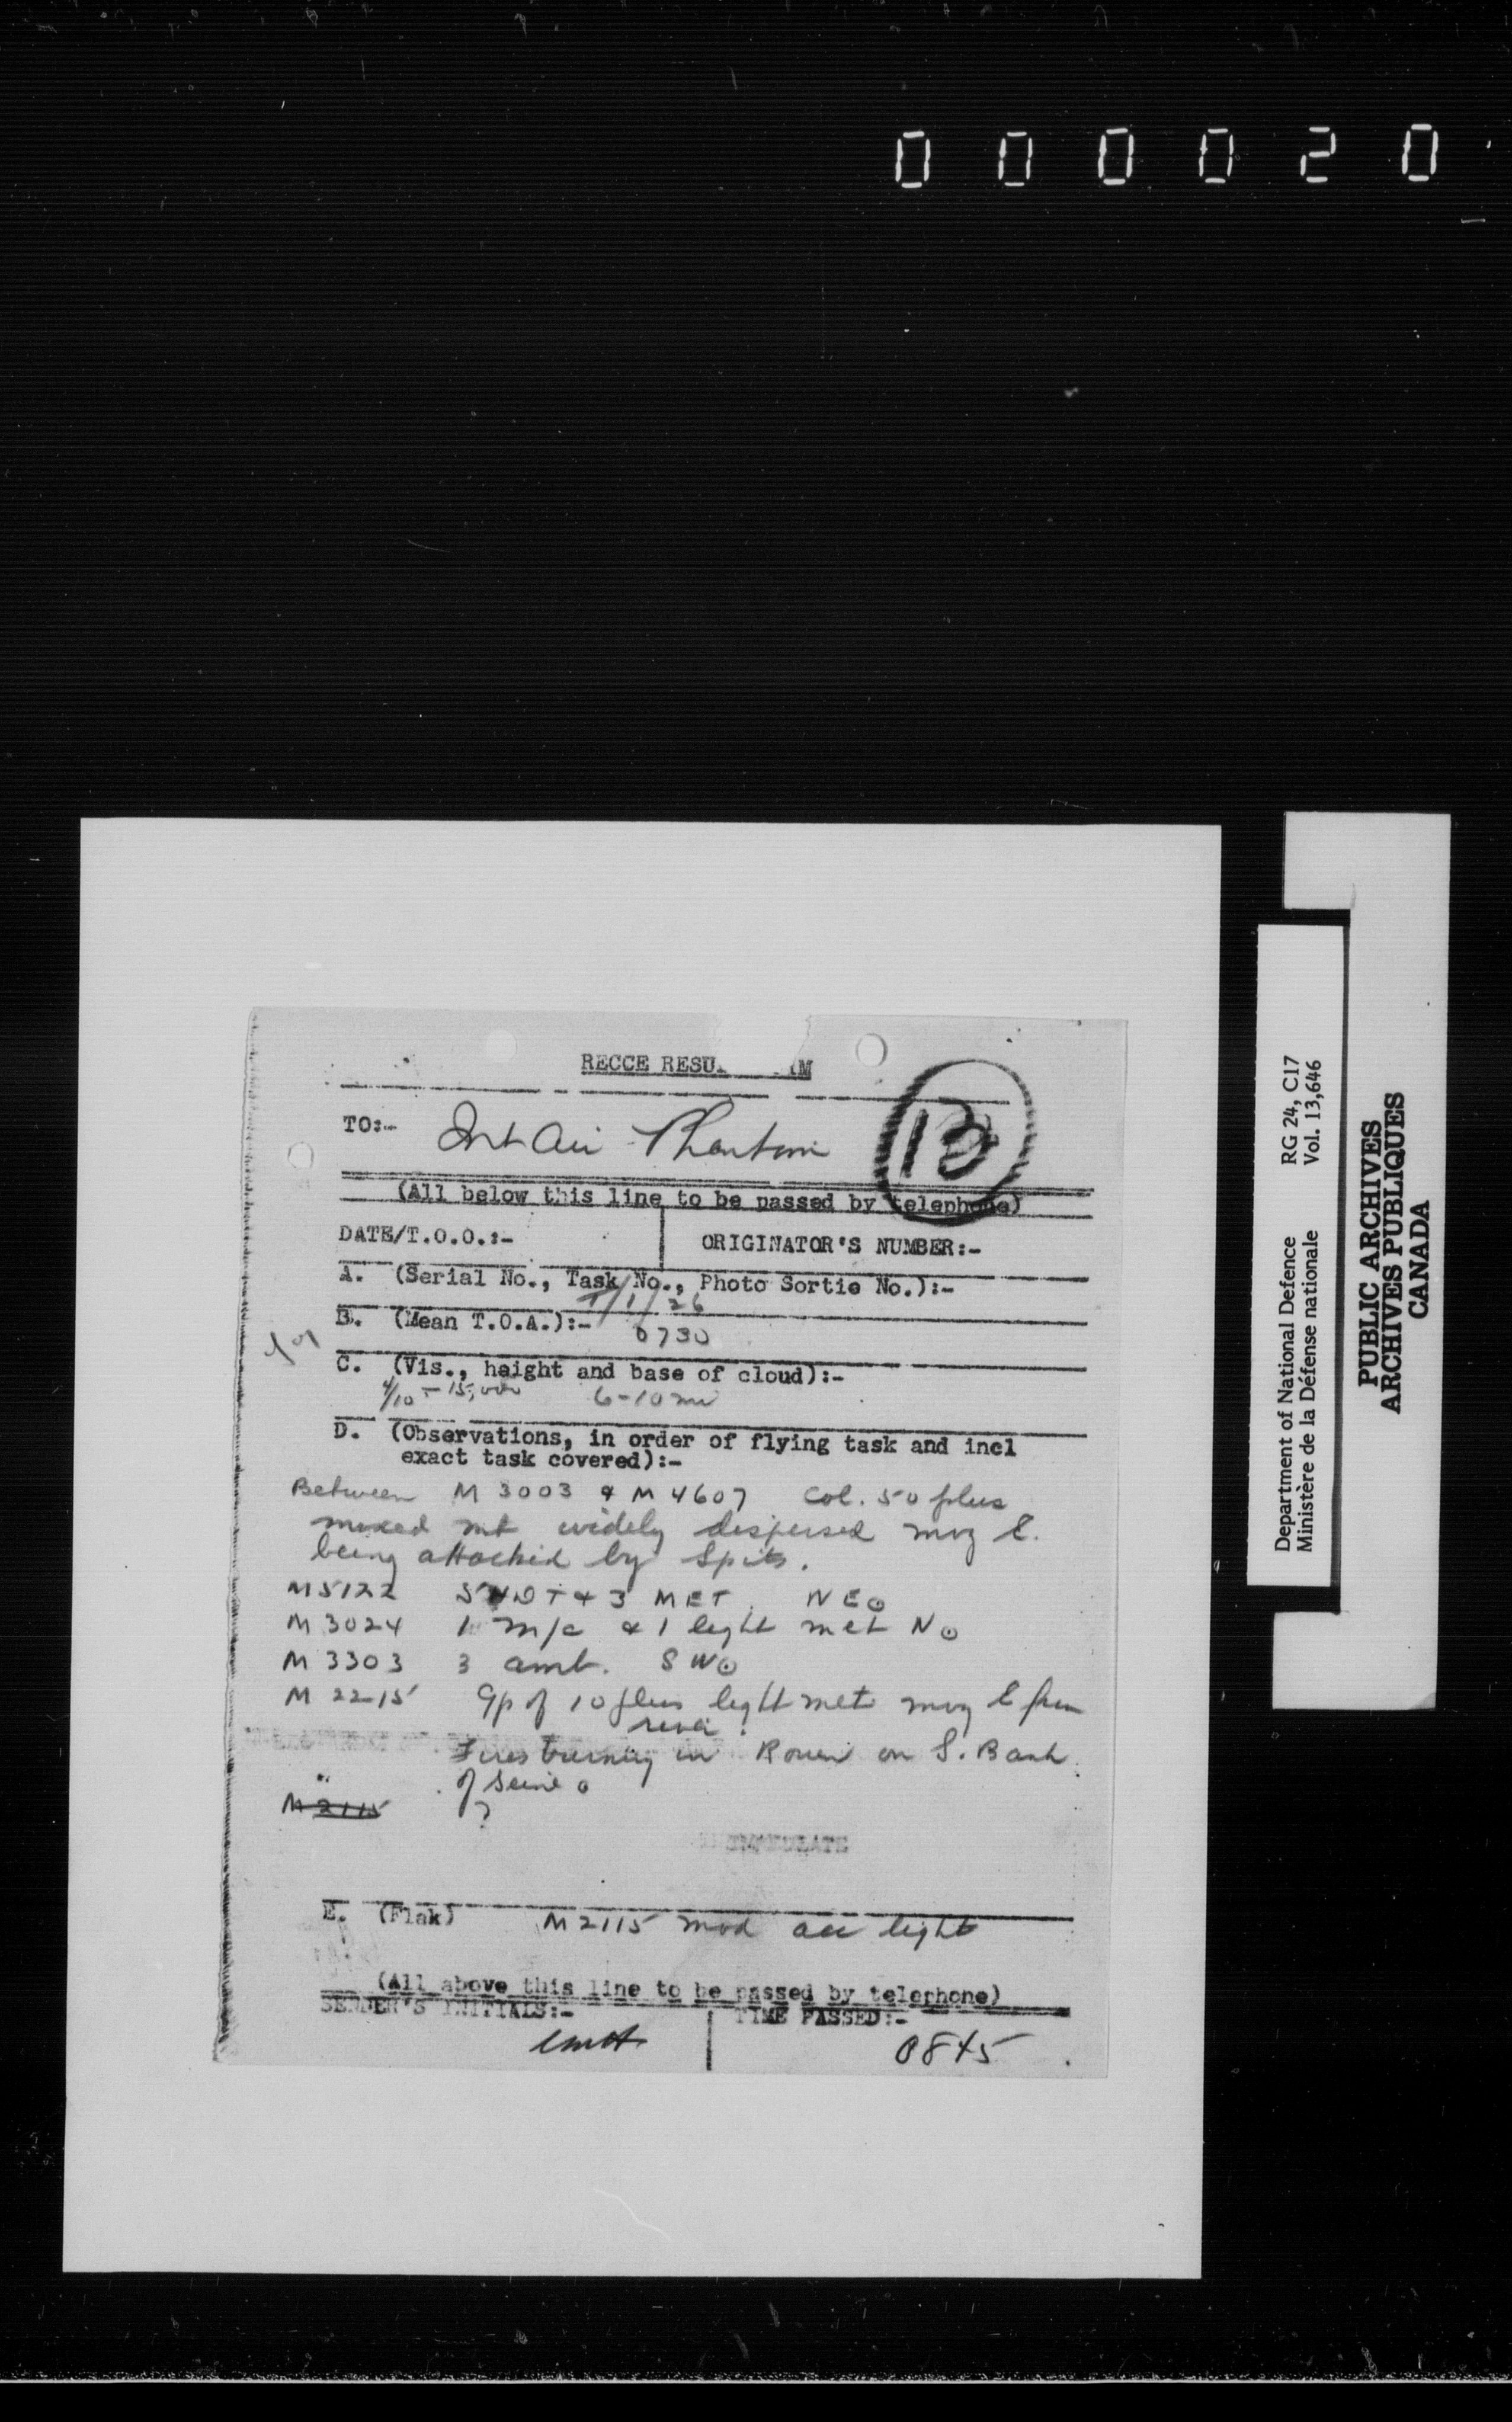 000020
RECCE RESU
TO:- Int Air Phantom
13
(All below this line to be passed by telephone)
DATE/T.O.O.:-
ORIGINATOR'S NUMBER:-
A. (Serial No., Task No., Photo Sortie No.):-
/1/26
B. (Mean T.O.A.):- 0730
C. (Vis., height and base of cloud):-
4/10 - 15,000 6-10 mi
D. (Observations, in order of flying task and incl
exact task covered):-
Between M 3003 & M 4607 Col. 50 plus
mixed mt widely dispersed mvg E.
being attacked by Spits.
M5122 & 3 MET. NE
M 3024 1 m/c & 1 light met N
M 3303 3 amb. SW
M 2215 Gp of 10 plus light met mvg E from
river
Fires burning in Rouen on S. Bank
of Seine
M 2115 ?
IMMEDIATE
E. (Flak) M2115 mod acc light
(All above this line to be passed by telephone)
SENDER'S INITIALS:-
TIME PASSED:-
0845
Department of National Defence RG 24, C17
Ministère de la Défense nationale Vol. 13,646
PUBLIC ARCHIVES
ARCHIVES PUBLIQUES
CANADA